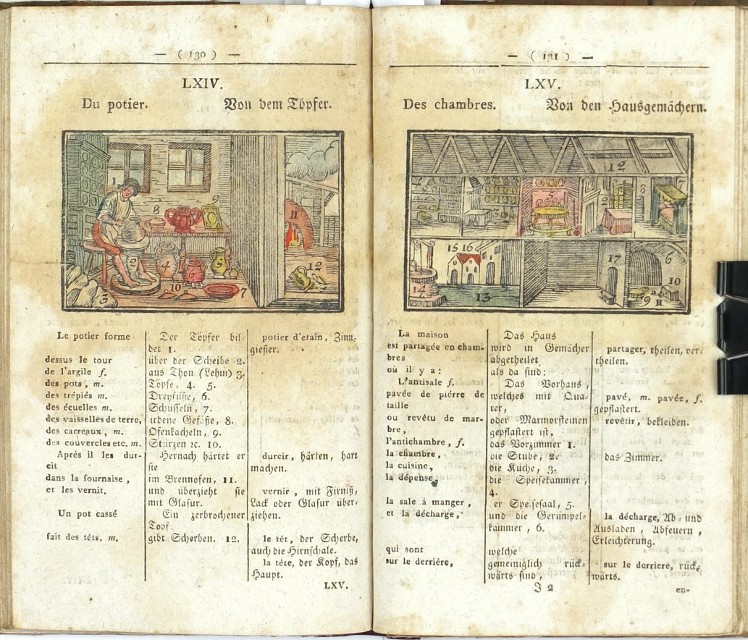 — ( 130 ) —
LXIV.
Du potier. Von dem Töpfer.
1
2
3
4
7
8
9
10
11
12
Le potier forme
dessus le tour
de l'argile f.
des pots, m.
des trépiés m.
des écuelles m.
des vaisselles de terre,
des carreaux, m.
des couvercles etc. m.
Après il les dur-
cit
dans la fournaise,
et les vernit.
Un pot cassé
fait des têts, m.
Der Töpfer bil-
det 1.
über der Scheibe 2.
aus Thon (Lehm) 3.
Töpfe, 4. 5.
Dreyfüße, 6.
Schüsseln, 7.
irdene Gefäße, 8.
Ofenkacheln, 9.
Stürzen ꝛc. 10.
Hernach härtet er
sie
im Brennofen, 11.
und überzieht sie
mit Glasur.
Ein zerbrochener
Topf
gibt Scherben. 12.
potier d'etain, Zinn-
gießer.
durcir, härten, hart
machen.
vernir, mit Firniß,
Lack oder Glasur über-
ziehen.
le têt, der Scherbe,
auch die Hirnschale.
la tête, der Kopf, das
Haupt.
LXV.
— ( 131 ) —
LXV.
Des chambres. Von den Hausgemächern.
12
8
6
15 16
17
10
9
11
14
13
La maison
est partagée en cham-
bres
où il y a:
L'antisale f.
pavée de pierre de
taille
ou revêtu de mar-
bre,
l'antichambre, f.
la chambre,
la cuisine,
la dépense,
la sale à manger,
et la décharge,
qui sont
sur le derrière,
Das Haus
wird in Gemächer
abgetheilet
als da sind:
Das Vorhaus,
welches mit Qua-
ter,
oder Marmorsteinen
gepflastert ist,
das Vorzimmer 1.
die Stube, 2.
die Küche, 3.
die Speisekammer,
4.
er Speisesaal, 5.
und die Gerümpel-
kammer, 6.
welche
gemeiniglich rück-
wärts sind,
J 2
partager, theilen, ver-
theilen.
pavé, m. pavée, f.
gepflastert.
revêtir, bekleiden.
das Zimmer.
la décharge, Ab- und
Ausladen, Abfeuern,
Erleichterung.
sur le derriere, rück-
wärts.
en-